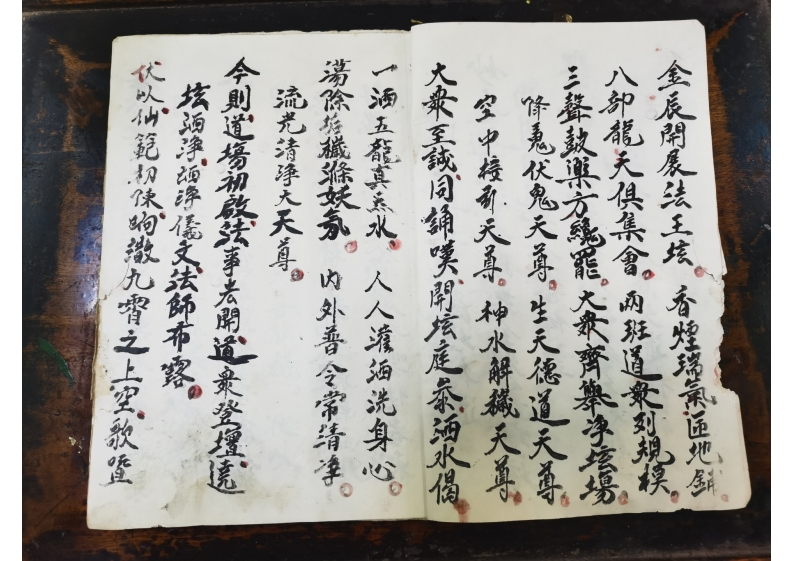 金辰開展法王坛 香煙瑞氣匝地鋪
八部龍天俱集會 兩班道衆列規模
三聲鼓樂方纔罷 大衆齊舉净坛場
降魔伏鬼天尊 生天德道天尊
空中接引天尊 神水解穢天尊
大衆至誠同誦嘆開坛庭恭洒水偈
一洒五龍真炁水 人人灌洒洗身心
蕩除 穢滌妖氛 内外普令常清净
流光清净大天尊
今則道塲初啟法事㕔開道衆登壇遶
坛洒净洒净儀文法師布露
伏以仙範初陳响徹九霄之上空歌